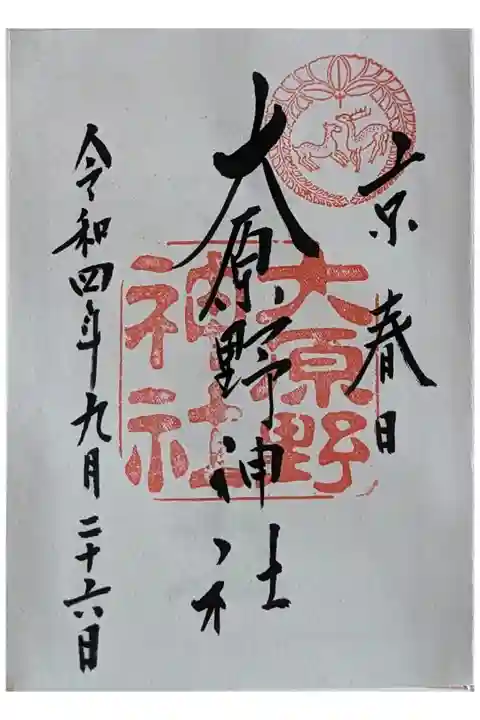 京春日
大原野神社
令和四年九月二十六日
大原野
神社